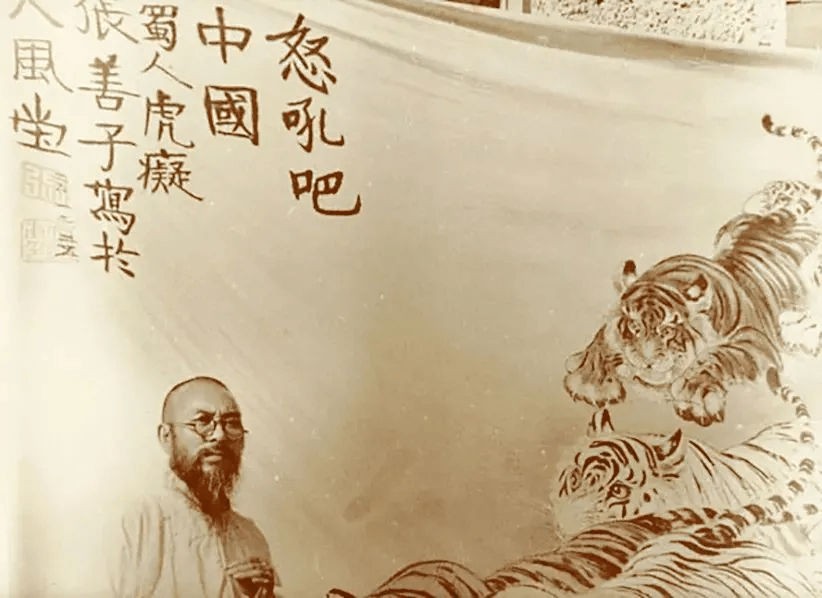 怒吼吧
中國
蜀人虎癡
張善子寫於
大風堂